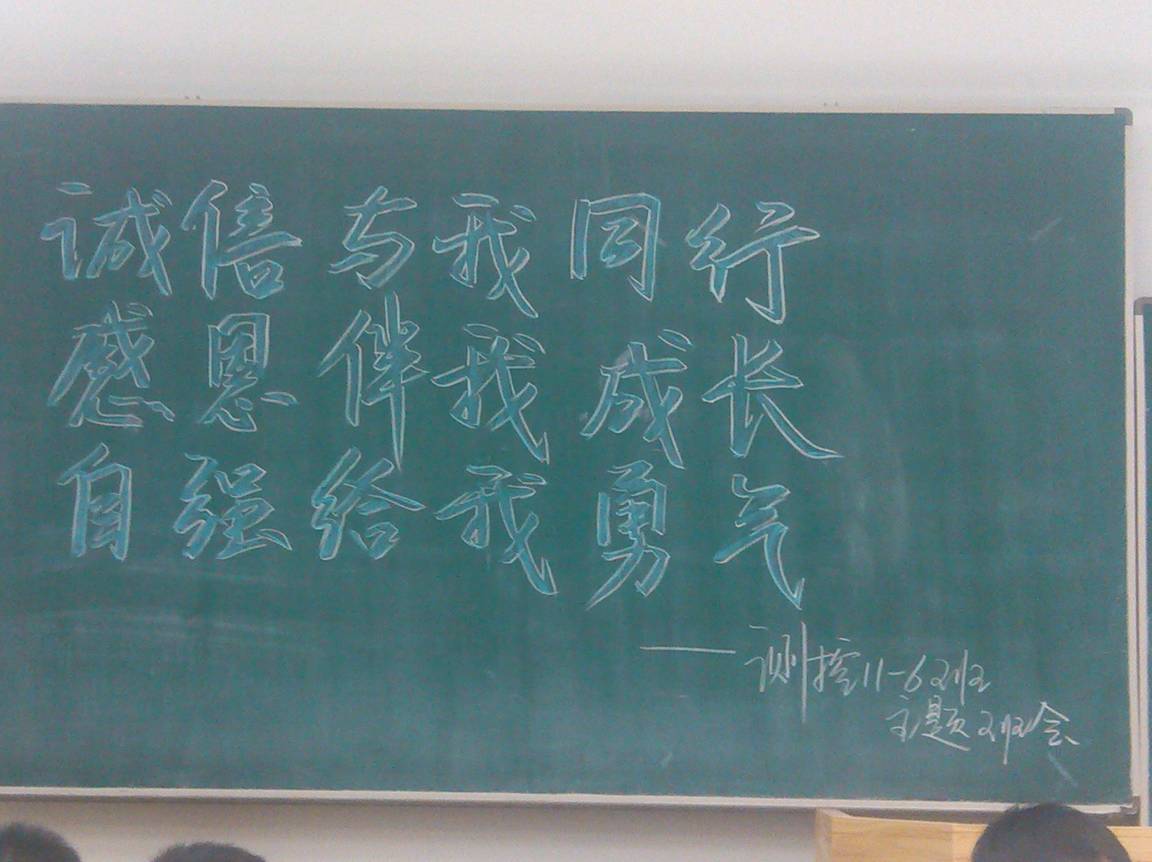 诚信与我同行
感恩伴我成长
自强给我勇气
——测控11-6班
主题班会